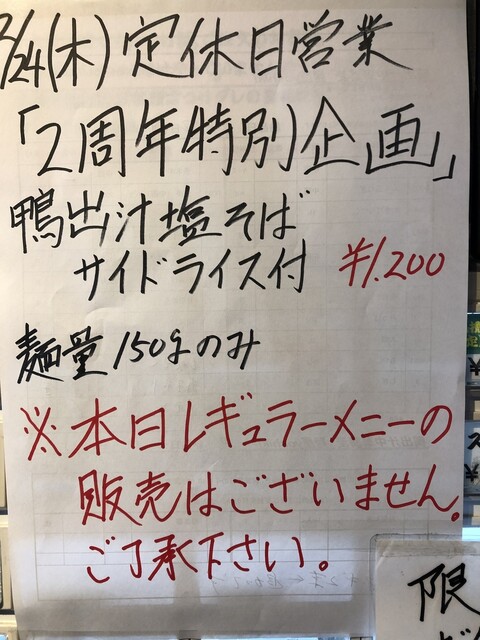 2/24(木)定休日営業
「2周年特別企画」
鴨出汁塩そば
サイドライス付 ¥1.200
麺量150gのみ
※本日レギュラーメニーの
販売はございません。
ご了承下さい。
限